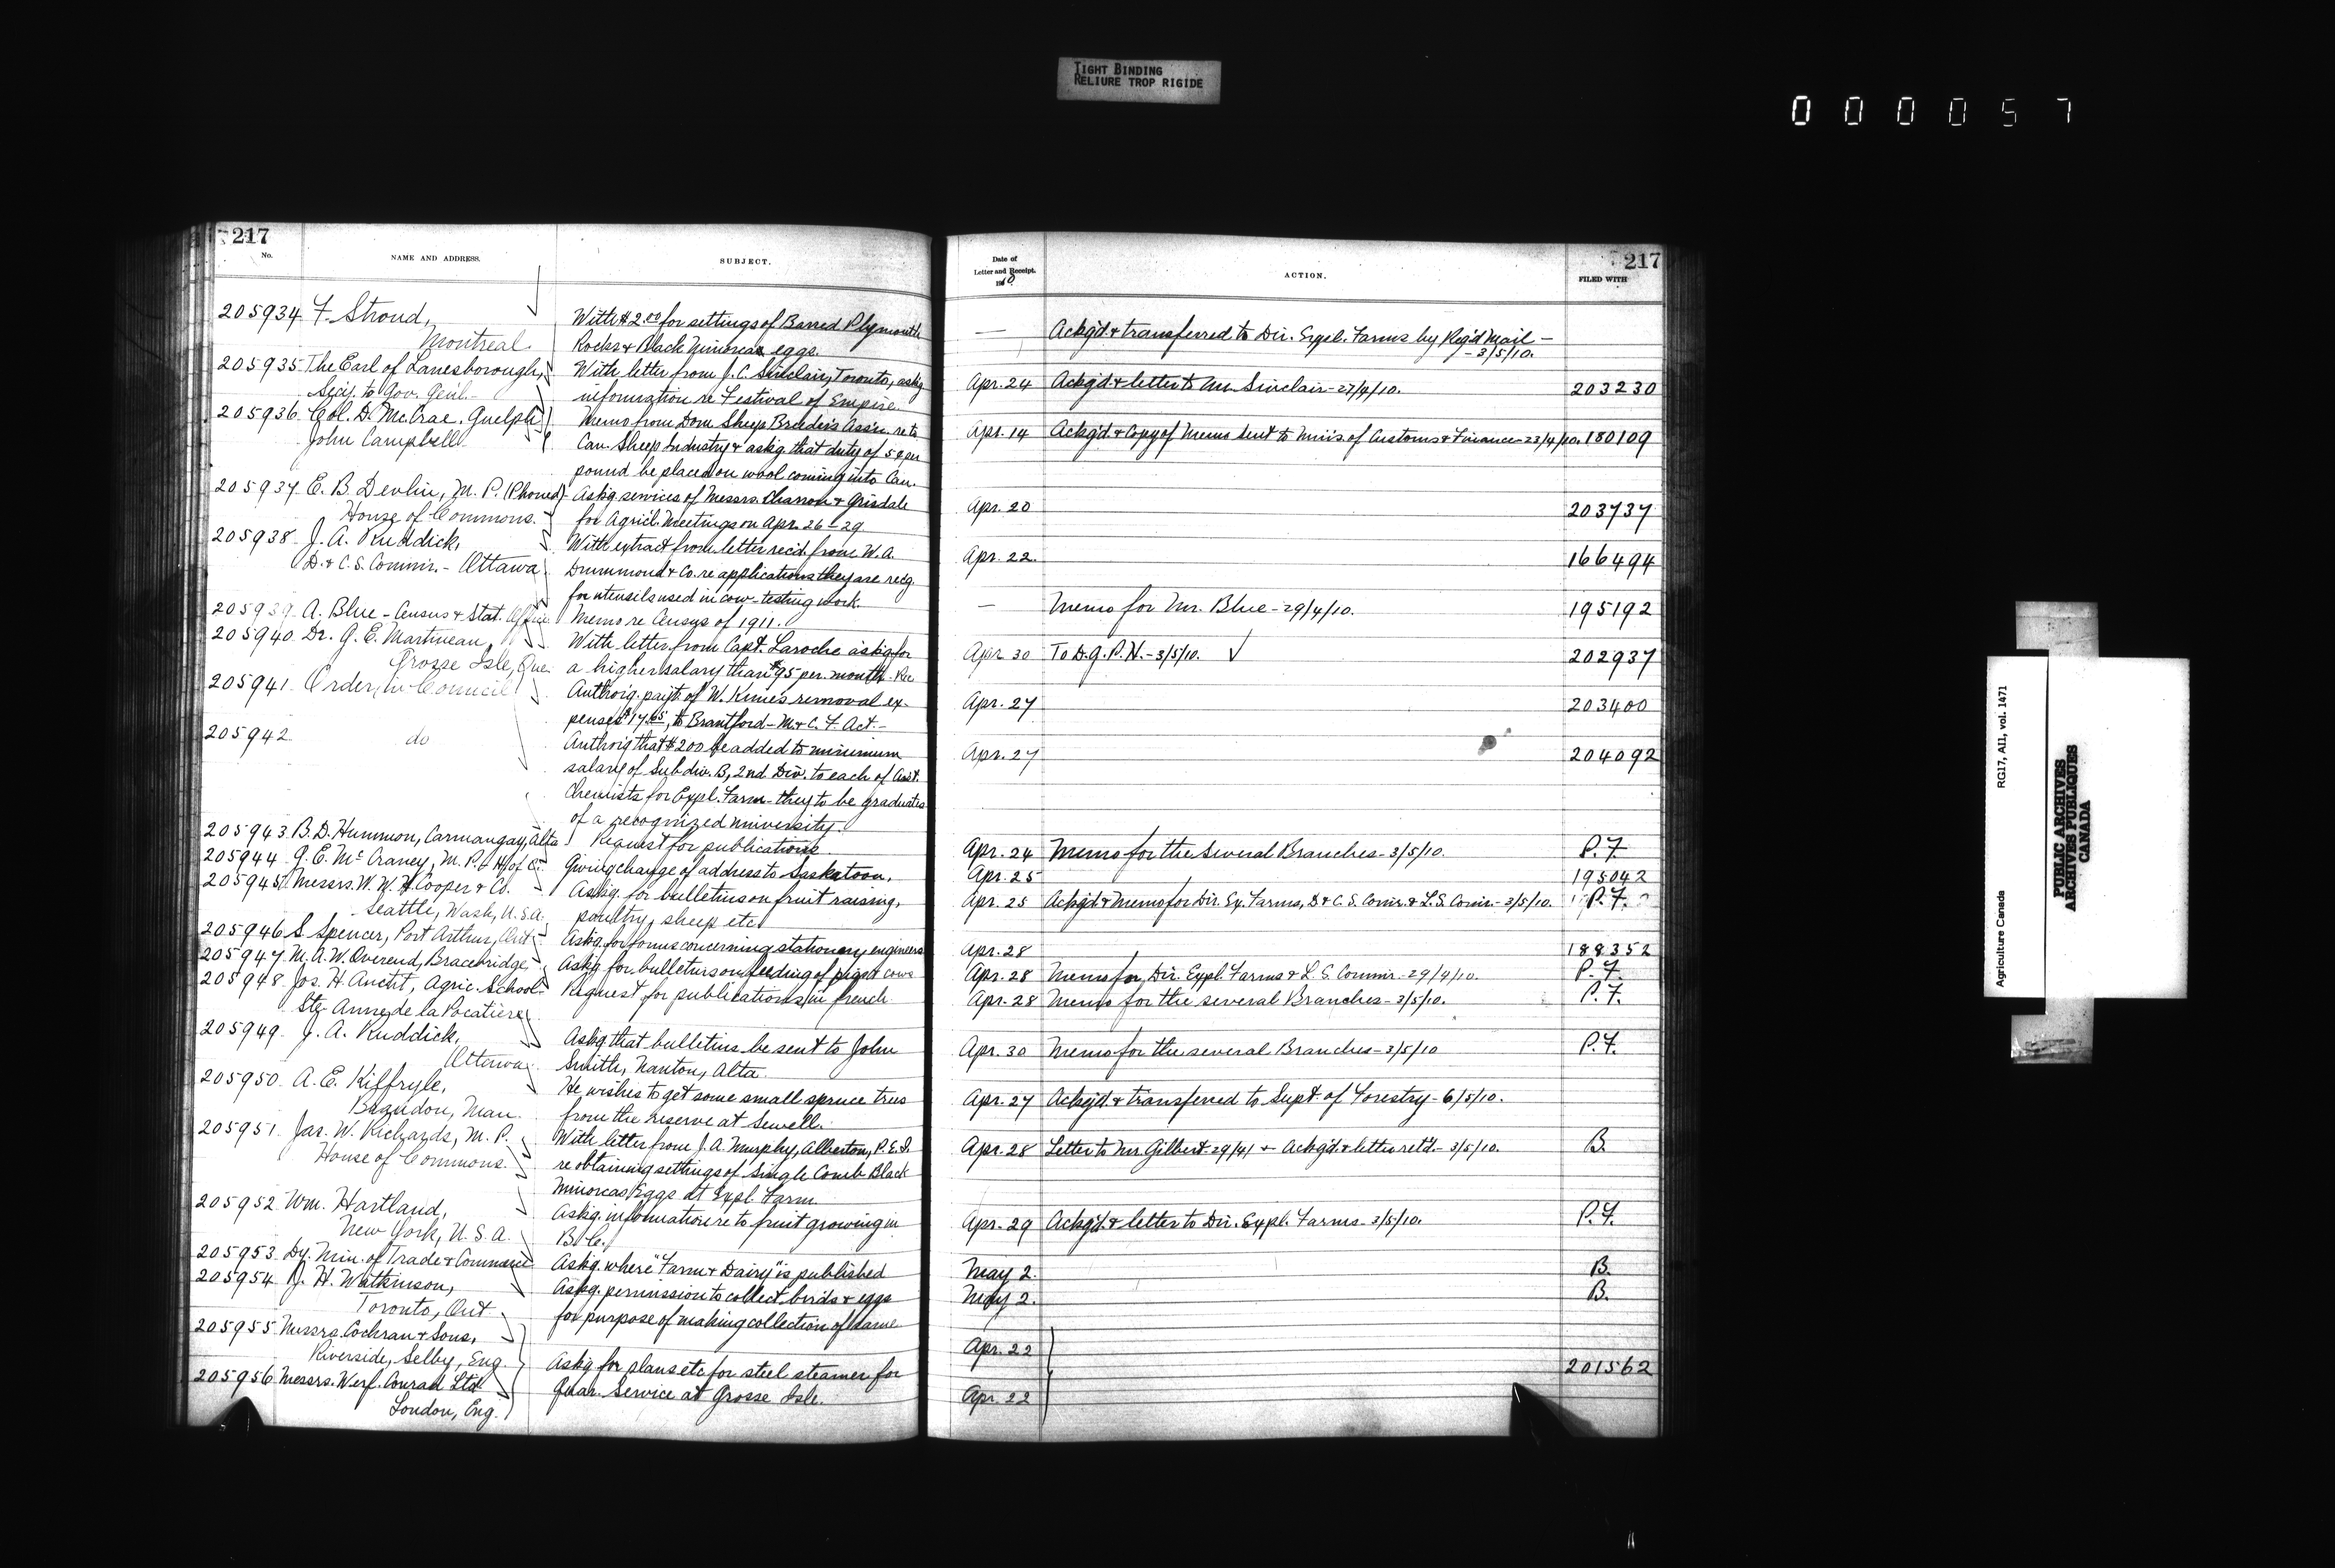 TIGHT BINDING
RELIURE TROP RIGIDE
0 0 0 0 5 7
217
No.
NAME AND ADDRESS.
SUBJECT.
205934 F. Stroud,
Montreal.
With $2.00 for settings of Barred Plymouth
Rocks & Black Minorcas eggs.
205935 The Earl of Lanesborough,
Sec'y. to Gov. Gen'l.
With letter from J. C. Sinclair, Toronto, ask'g
information re Festival of Empire.
205936 Col. D. McCrae, Guelph
John Campbell
Memo from Dom. Sheep Breeders Ass'n. re to
Can. Sheep Industry & ask'g. that duty of 5¢ per
pound be placed on wool coming into Can.
205937 E. B. Devlin, M. P. (Phoned)
House of Commons.
Ask'g. services of Messrs. Charron & Grisdale
for Agric'l. Meetings on Apr. 26-29
205938 J. A. Ruddick,
D. & C. S. Comm'r. - Ottawa
With extract from letter rec'd. from W. A.
Drummond & Co. re applications they are rec'g.
for utensils used in cow-testing work.
205939 A. Blue - Census & Stat. Office
Memo re Census of 1911.
205940 Dr. G. E. Martineau,
Grosse Isle, Que.
With letter from Capt. Laroche ask'g for
a higher salary than $95 per month.
205941 Order in Council
Author'g. pay't. of W. Kime's removal ex-
penses $17.65, to Brantford - M. & C. F. Act -
205942 do
Author'g that $200 be added to minimum
salary of Subdiv. B, 2nd Div. to each of Ass't.
Chemists for Expl. Farm - they to be graduates
of a recognized university.
205943 B. D. Hummon, Carmangay, Alta
Request for publications.
205944 G. E. McCraney, M. P. H. of C.
Giving change of address to Saskatoon.
205945 Messrs. W. W. H. Cooper & Co.
Seattle, Wash, U.S.A.
Ask'g. for bulletins on fruit raising,
poultry, sheep etc.
205946 S. Spencer, Port Arthur, Ont
Ask'g. for forms concerning stationery engineers
205947 M. A. W. Overend, Bracebridge
Ask'g for bulletins on feeding of pigs & cows
205948 Jos. H. Anctil, Agric. School
Ste Anne de la Pocatière
Request for publications in French
205949 J. A. Ruddick,
Ottawa
Ask'g that bulletins be sent to John
Smith, Nanton, Alta.
205950 A. E. Kiffryle,
Brandon, Man.
He wishes to get some small spruce trees
from the reserve at Sewell.
205951 Jas. W. Richards, M. P.
House of Commons.
With letter from J. A. Murphy, Alberton, P. E. I.
re obtaining settings of Single Comb Black
Minorcas Eggs at Expl. Farm.
205952 Wm. Hartland,
New York, U. S. A.
Ask'g. information re to fruit growing in
B. C.
205953 Dy. Min. of Trade & Commerce
Ask'g. where "Farm & Dairy" is published
205954 J. H. Watkinson,
Toronto, Ont
Ask'g. permission to collect birds & eggs
for purpose of making collection of same
205955 Messrs. Cochran & Sons,
Riverside, Selby, Eng.
205956 Messrs. Werf. Conrad Ltd
London, Eng.
Ask'g for plans etc for steel steamer for
Quar. Service at Grosse Isle.
217
Date of
Letter and Receipt.
1910
ACTION.
FILED WITH
— Ackg'd. & transferred to Dir. Expl. Farms by Reg'd Mail -
- 3/5/10.
Apr. 24 Ackg'd. & letter to Mr. Sinclair - 27/4/10. 203230
Apr. 14 Ackg'd & Copy of Memo sent to Min's. of Customs & Finance - 23/4/10. 180109
Apr. 20 203737
Apr. 22 166494
— Memo for Mr. Blue - 29/4/10. 195192
Apr 30 To D. G. P. H. - 3/5/10. ✓ 202937
Apr. 27 203400
Apr. 27 204092
Apr. 24 Memo for the several Branches - 3/5/10. P. F.
Apr. 25 195042
Apr. 25 Ackg'd & Memo for Dir. Ex. Farms, D. & C. S. Com'r. & L. S. Com'r. - 3/5/10. P. F.
Apr. 28 188352
Apr. 28 Memo for Dir. Expl. Farms & L. S. Comm'r. - 29/4/10. P. F.
Apr. 28 Memo for the several Branches - 3/5/10. P. F.
Apr. 30 Memo for the several Branches - 3/5/10 P. F.
Apr. 27 Ackg'd. & transferred to Supt. of Forestry - 6/5/10.
Apr. 28 Letter to Mr. Gilbert 29/4/ & Ackg'd. & letter ret'd. - 3/5/10. B.
Apr. 29 Ackg'd. & letter to Dir. Expl. Farms - 3/5/10. P. F.
May 2. B.
May 2. B.
Apr. 22
201562
Apr. 22
Agriculture Canada RG17, AII, vol. 1471
PUBLIC ARCHIVES
ARCHIVES PUBLIQUES
CANADA